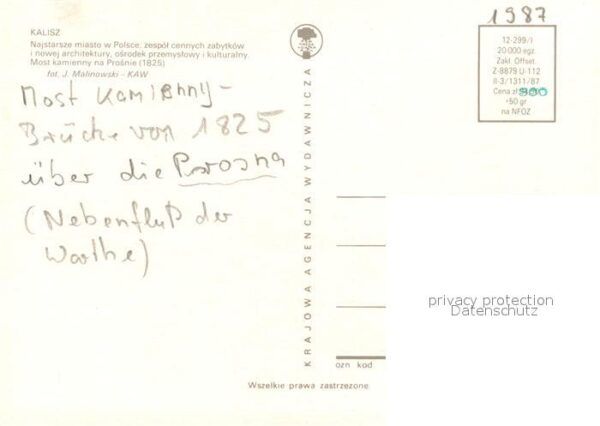 KALISZ
Najstarsze miasto w Polsce, zespół cennych zabytków
i nowej architektury, ośrodek przemysłowy i kulturalny.
Most kamienny na Prośnie (1825)
fot. J. Malinowski – KAW
Most Kamienny –
Brücke von 1825
über die Prosna
(Nebenfluß der
Warthe)
KRAJOWA AGENCJA WYDAWNICZA
1987
12-299/I
20 000 egz.
Zakł. Offset.
Z-8879 U-112
II-3/1311/87
Cena zł 900
+50 gr
na NFOZ
privacy protection
Datenschutz
ozn kod
Wszelkie prawa zastrzeżone.